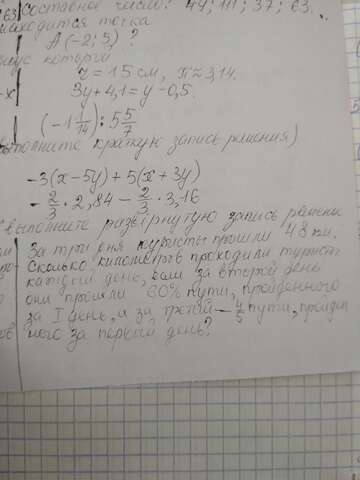 63 Составное число: 44; 111; 37; 63.
находится точка
А (-2; 5)?
диус которой
r = 15 см, π ≈ 3,14.
-x 3y + 4,1 = y - 0,5.
(-1 1/14) : 5 5/7
выполните краткую запись решения)
-3(x - 5y) + 5(x + 3y)
- 2/3 · 2,84 - 2/3 · 3,16
выполните развёрнутую запись решени
За три дня туристы прошли 48 км.
Сколько километров проходили туристы
каждый день, если за второй день
они прошли 60% пути, пройденного
за I день, а за третий - 4/5 пути, пройден
ного за первый день?